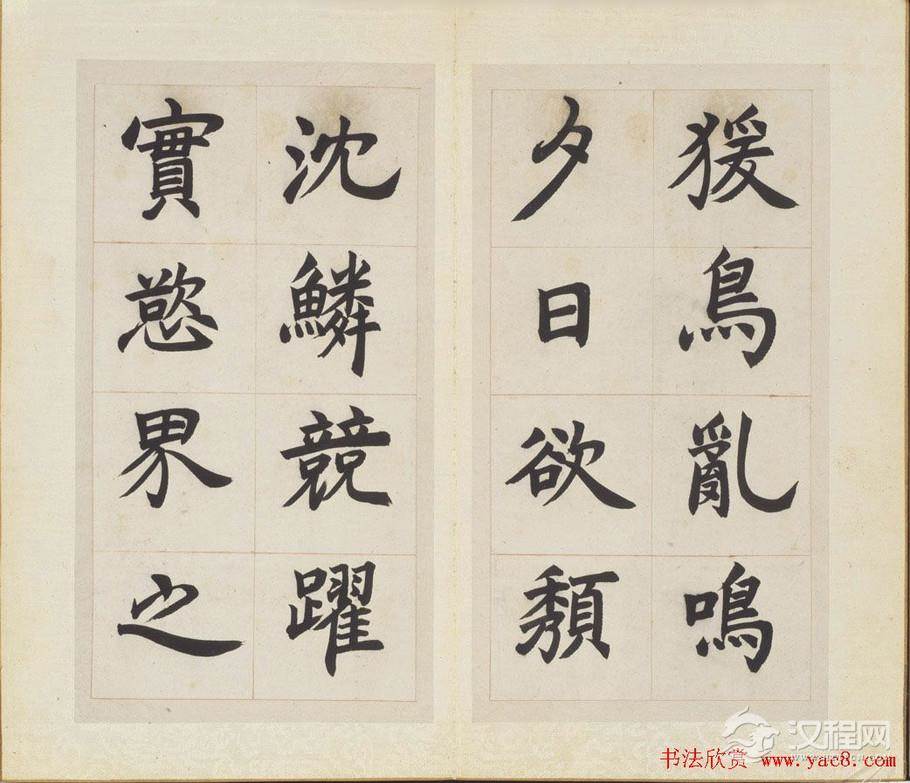 猨鳥亂鳴
夕日欲頽
沈鱗競躍
實慾界之
汉程网
书法欣赏 www.yac8.com